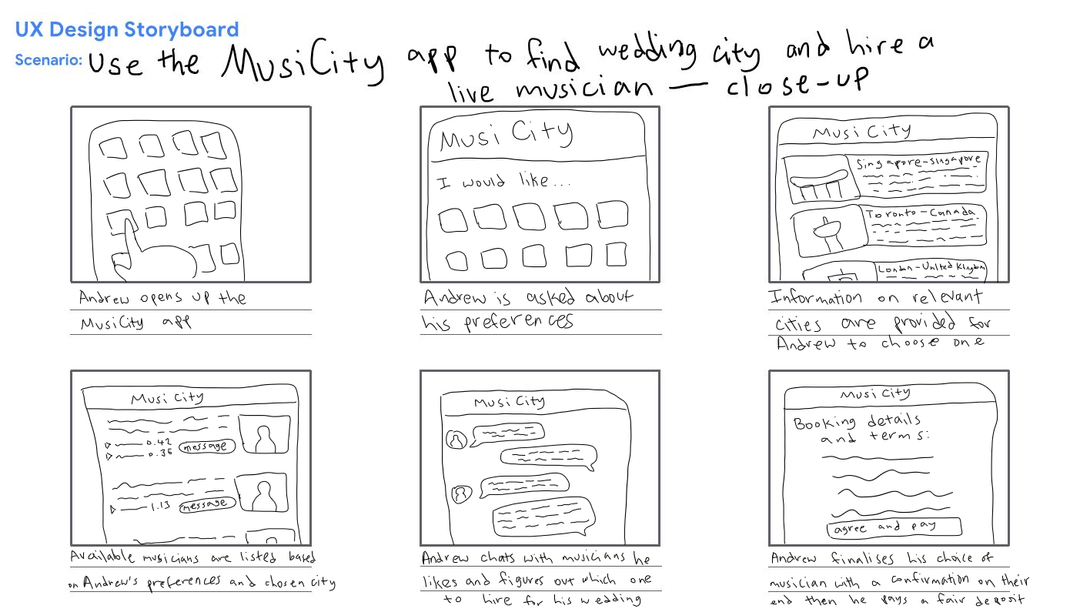 UX Design Storyboard
Scenario: Use the MusiCity app to find wedding city and hire a
live musician — close-up
Andrew opens up the
MusiCity app
Musi City
I would like...
Andrew is asked about
his preferences
Musi City
Singapore-singapore
Toronto-Canada
London-United Kingdom
Information on relevant
cities are provided for
Andrew to choose one
Musi City
0.42
0.36
message
1.13
message
Available musicians are listed based
on Andrew's preferences and chosen city
Musi City
Andrew chats with musicians he
likes and figures out which one
to hire for his wedding
Musi City
Booking details
and terms:
agree and pay
Andrew finalises his choice of
musician with a confirmation on their
end then he pays a fair deposit